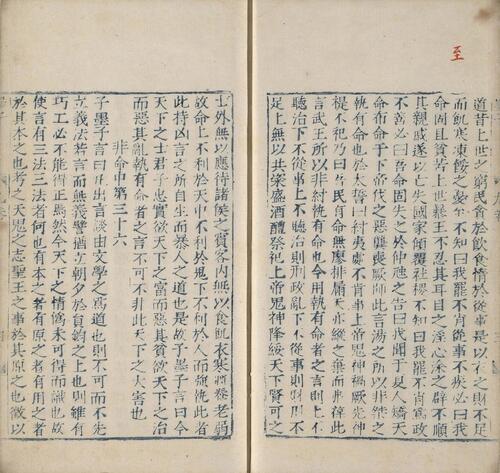 至
道昔上世之窮民貪於飲食惰於從事是以衣食之財不足
而飢寒凍餒之憂至不知曰我罷不肖從事不疾必曰我
命固且貧昔上世暴王不忍其耳目之淫心涂之辟不順
其親戚遂以亡失國家傾覆社稷不知曰我罷不肖為政
不善必曰吾命固失之於仲虺之告曰我聞于夏人矯天
命布命于下帝伐之惡龔喪厥師此言湯之所以非桀之
執有命也於太誓曰紂夷處不肖事上帝鬼神禍厥先神
禔不祀乃曰吾民有命無廖排漏天亦縱之棄而弗葆此
言武王所以非紂執有命也今用執有命者之言則上不
聽治下不從事上不聽治則刑政亂下不從事則財用不
足上無以共粢盛酒醴祭祀上帝鬼神降綏天下賢可之
士外無以應待諸侯之賓客內無以食飢衣寒將養老弱
故命上不利於天中不利於鬼下不利於人而強執此者
此特凶言之所自生而暴人之道也是故子墨子言曰今
天下之士君子忠實欲天下之富而惡其貧欲天下之治
而惡其亂執有命者之言不可不非此天下之大害也
非命中第三十六
子墨子言曰凡出言談由文學之為道也則不可而不先
立義法若言而無義譬猶立朝夕於員鈞之上也則雖有
巧工必不能得正焉然今天下之情偽未可得而識也故
使言有三法三法者何也有本之者有原之者有用之者
於其本之也考之天鬼之志聖王之事於其原之也徵以